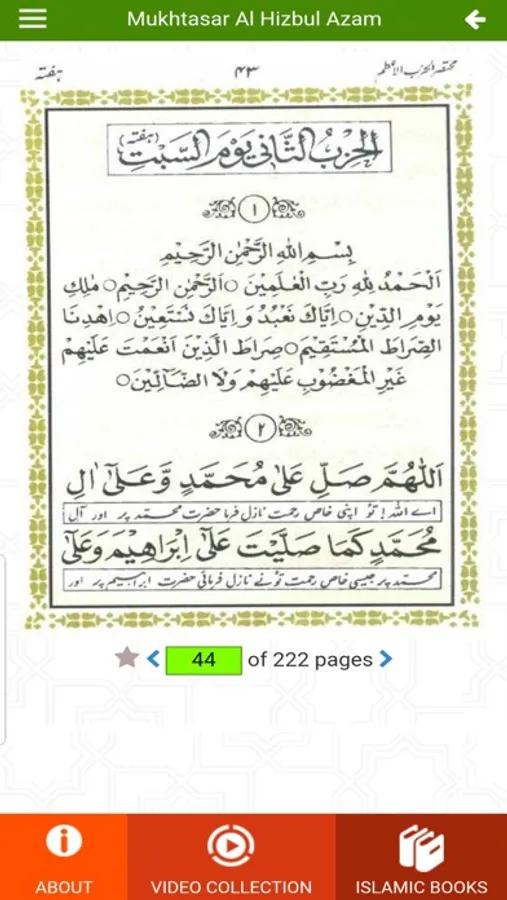 Mukhtasar Al Hizbul Azam
مختصر الحزب الأعظم ۴۳ ہفتہ
اَلْحِزْبُ الثَّانِیْ یَوْمَ السَّبْتِ (ہفتہ)
۱
بِسْمِ اللهِ الرَّحْمٰنِ الرَّحِيْمِ
اَلْحَمْدُ لِلّٰهِ رَبِّ الْعٰلَمِيْنَ ○ الرَّحْمٰنِ الرَّحِيْمِ ○ مٰلِكِ
يَوْمِ الدِّيْنِ ○ اِيَّاكَ نَعْبُدُ وَ اِيَّاكَ نَسْتَعِيْنُ ○ اِهْدِنَا
الصِّرَاطَ الْمُسْتَقِيْمَ ○ صِرَاطَ الَّذِيْنَ اَنْعَمْتَ عَلَيْهِمْ
غَيْرِ الْمَغْضُوْبِ عَلَيْهِمْ وَلَا الضَّآلِّيْنَ ○
۲
اَللّٰهُمَّ صَلِّ عَلٰى مُحَمَّدٍ وَّعَلٰٓى اٰلِ
اے اللہ! تو اپنی خاص رحمت نازل فرما حضرت محمّد پر اور آلِ
مُحَمَّدٍ كَمَا صَلَّيْتَ عَلٰٓى اِبْرَاهِيْمَ وَعَلٰٓى
محمّد پر جیسی خاص رحمت تُو نے نازل فرمائی حضرت ابراہیم پر اور
44 of 222 pages
ABOUT VIDEO COLLECTION ISLAMIC BOOKS